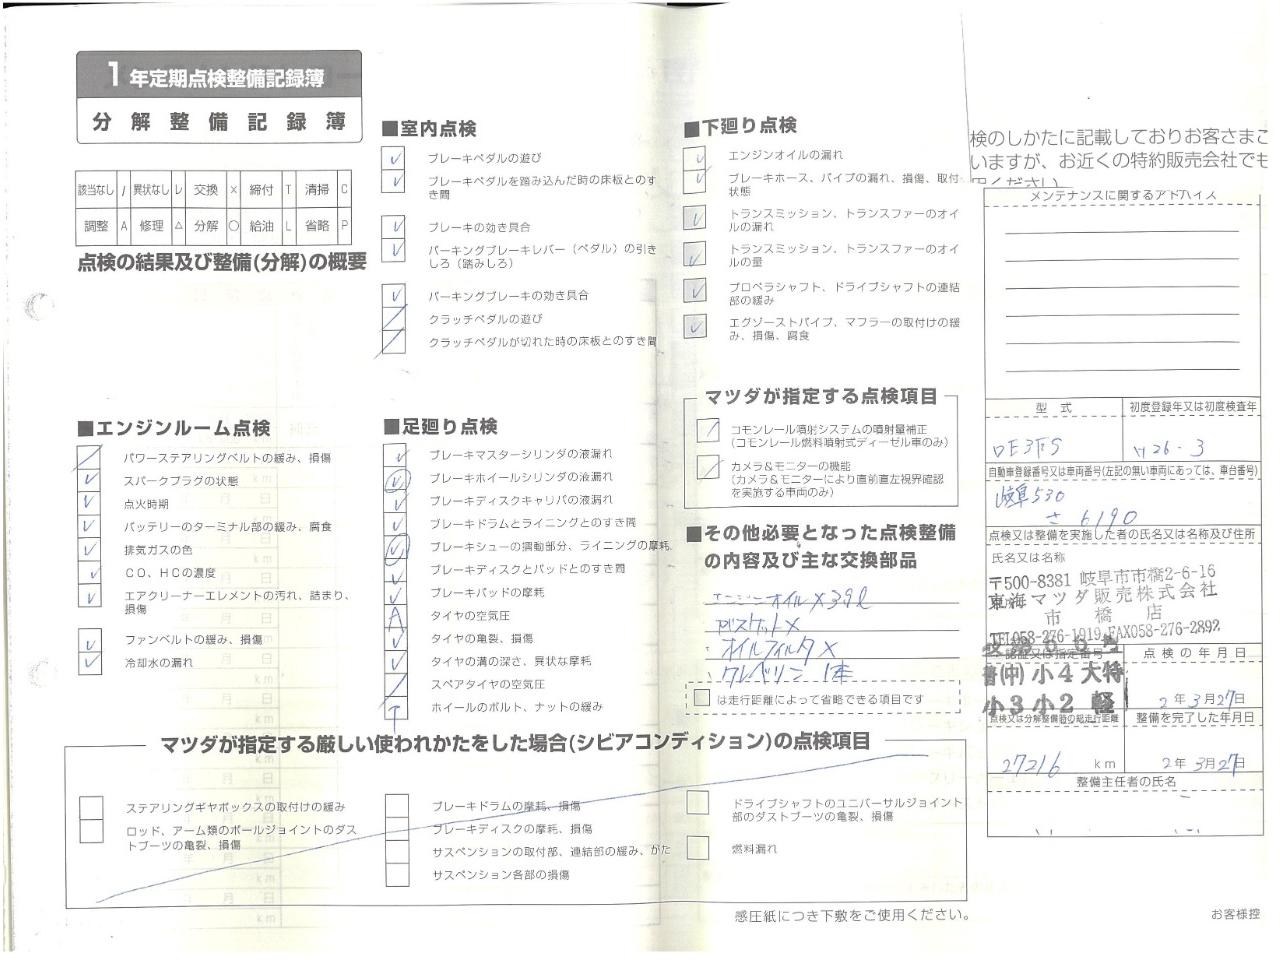 1年定期点検整備記録簿
分解整備記録簿
該当なし / 異状なし レ 交換 × 締付 T 清掃 C
調整 A 修理 △ 分解 ○ 給油 L 省略 P
点検の結果及び整備(分解)の概要
■エンジンルーム点検
パワーステアリングベルトの緩み、損傷
スパークプラグの状態
点火時期
バッテリーのターミナル部の緩み、腐食
排気ガスの色
CO、HCの濃度
エアクリーナーエレメントの汚れ、詰まり、
損傷
ファンベルトの緩み、損傷
冷却水の漏れ
■室内点検
ブレーキペダルの遊び
ブレーキペダルを踏み込んだ時の床板とのす
き間
ブレーキの効き具合
パーキングブレーキレバー(ペダル)の引き
しろ(踏みしろ)
パーキングブレーキの効き具合
クラッチペダルの遊び
クラッチペダルが切れた時の床板とのすき間
■足廻り点検
ブレーキマスターシリンダの液漏れ
ブレーキホイールシリンダの液漏れ
ブレーキディスクキャリパの液漏れ
ブレーキドラムとライニングとのすき間
ブレーキシューの摺動部分、ライニングの摩耗
ブレーキディスクとパッドとのすき間
ブレーキパッドの摩耗
A タイヤの空気圧
タイヤの亀裂、損傷
タイヤの溝の深さ、異状な摩耗
スペアタイヤの空気圧
T ホイールのボルト、ナットの緩み
■下廻り点検
エンジンオイルの漏れ
ブレーキホース、パイプの漏れ、損傷、取付
状態
トランスミッション、トランスファーのオイ
ルの漏れ
トランスミッション、トランスファーのオイ
ルの量
プロペラシャフト、ドライブシャフトの連結
部の緩み
エグゾーストパイプ、マフラーの取付けの緩
み、損傷、腐食
マツダが指定する点検項目
コモンレール噴射システムの噴射量補正
(コモンレール燃料噴射式ディーゼル車のみ)
カメラ&モニターの機能
(カメラ&モニターにより直前直左視界確認
を実施する車両のみ)
■その他必要となった点検整備
の内容及び主な交換部品
エンジンオイル×3.9ℓ
ガスケット×
オイルフィルタ×
クレベリン 1本
は走行距離によって省略できる項目です
マツダが指定する厳しい使われかたをした場合(シビアコンディション)の点検項目
ステアリングギヤボックスの取付けの緩み
ロッド、アーム類のボールジョイントのダス
トブーツの亀裂、損傷
ブレーキドラムの摩耗、損傷
ブレーキディスクの摩耗、損傷
サスペンションの取付部、連結部の緩み、がた
サスペンション各部の損傷
ドライブシャフトのユニバーサルジョイント
部のダストブーツの亀裂、損傷
燃料漏れ
感圧紙につき下敷をご使用ください。
検のしかたに記載しておりお客さまご
いますが、お近くの特約販売会社でも
メンテナンスに関するアドバイス
型式 初度登録年又は初度検査年
DE3FS H26-3
自動車登録番号又は車両番号(左記の無い車両にあっては、車台番号)
岐阜530
さ 6190
点検又は整備を実施した者の氏名又は名称及び住所
氏名又は名称
〒500-8381 岐阜市市橋2-6-16
東海マツダ販売株式会社
市橋店
TEL058-276-1919 FAX058-276-2892
認証又は指定番号 点検の年月日
普(中)小4大特
小3小2軽
2年3月27日
点検又は分解整備時の総走行距離 整備を完了した年月日
27216 km 2年3月27日
整備主任者の氏名
お客様控